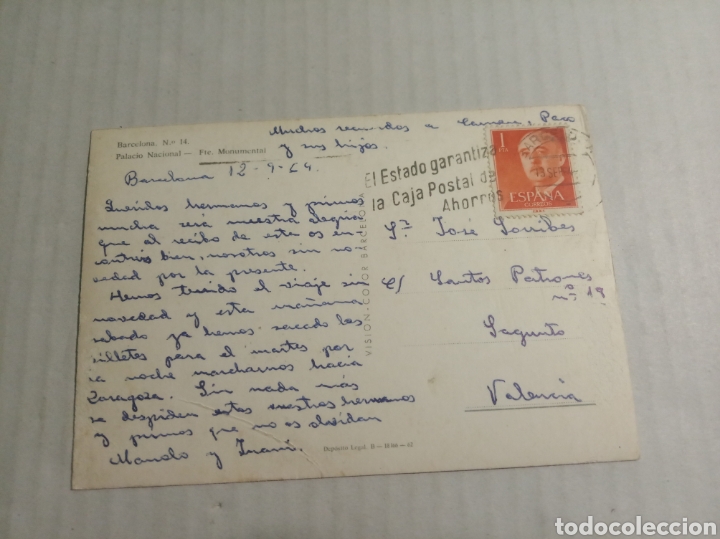 Muchos recuerdos a Carmen, Paco
y sus hijos.
Barcelona. N.º 14.
Palacio Nacional — Fte. Monumental
Barcelona 12-9-64
Queridos hermanos y primos
mucha será nuestra alegria
que al recibo de esta os en
contreis bien, nosotros sin no
vedad por la presente.
Hemos tenido el viaje sin
novedad y esta mañana
sabado ya hemos sacado los
villetes para el martes por
la noche marcharnos hacia
Zaragoza. Sin nada más
se despiden estos vuestros hermanos
y primos que no os olvidan
Manolo y
El Estado garantiza
la Caja Postal de
Ahorros
1
ESPAÑA
CORREOS
VISION-COLOR BARCELONA
Sr. José Sorribes
C/ Santos Patronos
nº 19
Sagunto
Valencia
Depósito Legal. B -
todocoleccion